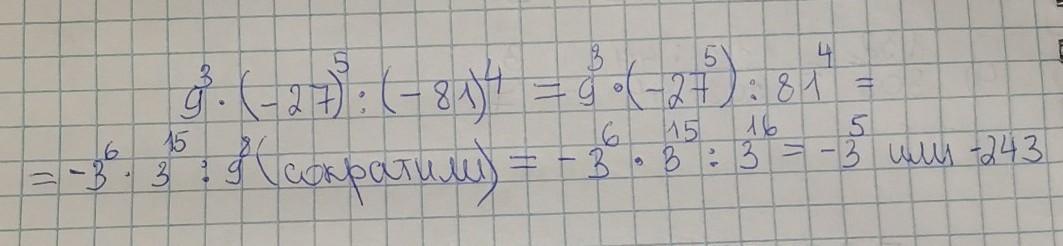 9³ · (-27)⁵ : (-81)⁴ = 9³ · (-27⁵) : 81⁴ =
= -3⁶ · 3¹⁵ : 9⁸ (сократили) = -3⁶ · 3¹⁵ : 3¹⁶ = -3⁵ или -243